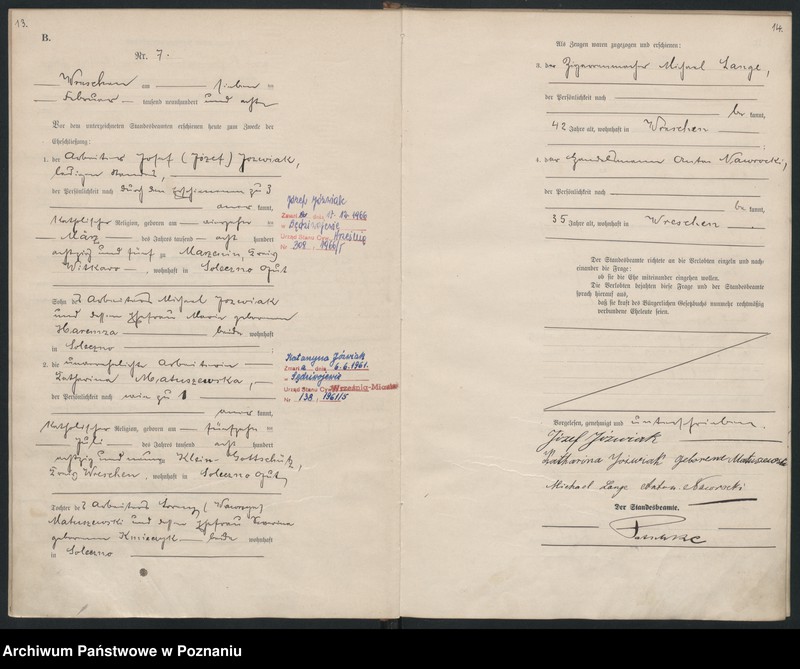 13.
B.
Nr. 7.
Wreschen am sieben ten
Februar tausend neunhundert und acht
Vor dem unterzeichneten Standesbeamten erschienen heute zum Zwecke der
Eheschließung:
1. der Arbeiter Josef (Józef) Jozwiak,
ledigen Standes,
der Persönlichkeit nach durch den zu 3
kannt,
katholischer Religion, geboren am
März des Jahres tausend acht hundert
achtzig und fünf zu Marzenin, Kreis
Witkowo, wohnhaft in Soleczno Gut
Sohn des Arbeiters Michael Jozwiak
und dessen Ehefrau Maria geborenen
Haremza beide wohnhaft
in Soleczno
2. die unverehelichte Arbeiterin
Katharina Matuszewska,
der Persönlichkeit nach wie zu 1
kannt,
katholischer Religion, geboren am fünfzehn ten
Juli des Jahres tausend acht hundert
achtzig und neun, Klein-Gottschütz,
Kreis Wreschen, wohnhaft in Soleczno Gut,
Tochter des Arbeiters Lorenz (Wawrzyn)
Matuszewski und dessen Ehefrau
geborenen Kmieczyk beide wohnhaft
in Soleczno
Józef Jóźwiak
Zmarł dnia 17.12.1966
w Sędziwojewie
Urząd Stanu Cyw. Września
Nr 309 1966/5
Katarzyna Jóźwiak
Zmarła dnia 6.6.1961.
w Sędziwojewie
Urząd Stanu Cyw. Września-Miasto
Nr 138 1961/5
14.
Als Zeugen waren zugezogen und erschienen:
3. der Zigarrenmacher Michael Lange,
der Persönlichkeit nach
be kannt,
42 Jahre alt, wohnhaft in Wreschen
;
4. der Handelsmann Anton Nawrocki,
der Persönlichkeit nach
be kannt,
35 Jahre alt, wohnhaft in Wreschen
.
Der Standesbeamte richtete an die Verlobten einzeln und nach-
einander die Frage:
ob sie die Ehe miteinander eingehen wollen.
Die Verlobten bejahten diese Frage und der Standesbeamte
sprach hierauf aus,
daß sie kraft des Bürgerlichen Gesetzbuchs nunmehr rechtmäßig
verbundene Eheleute seien.
Vorgelesen, genehmigt und unterschrieben.
Józef Jóźwiak
Katharona Jozwiak geborene Matuszewska
Michael Lange Anton Nawrocki
Der Standesbeamte.
Archiwum Państwowe w Poznaniu